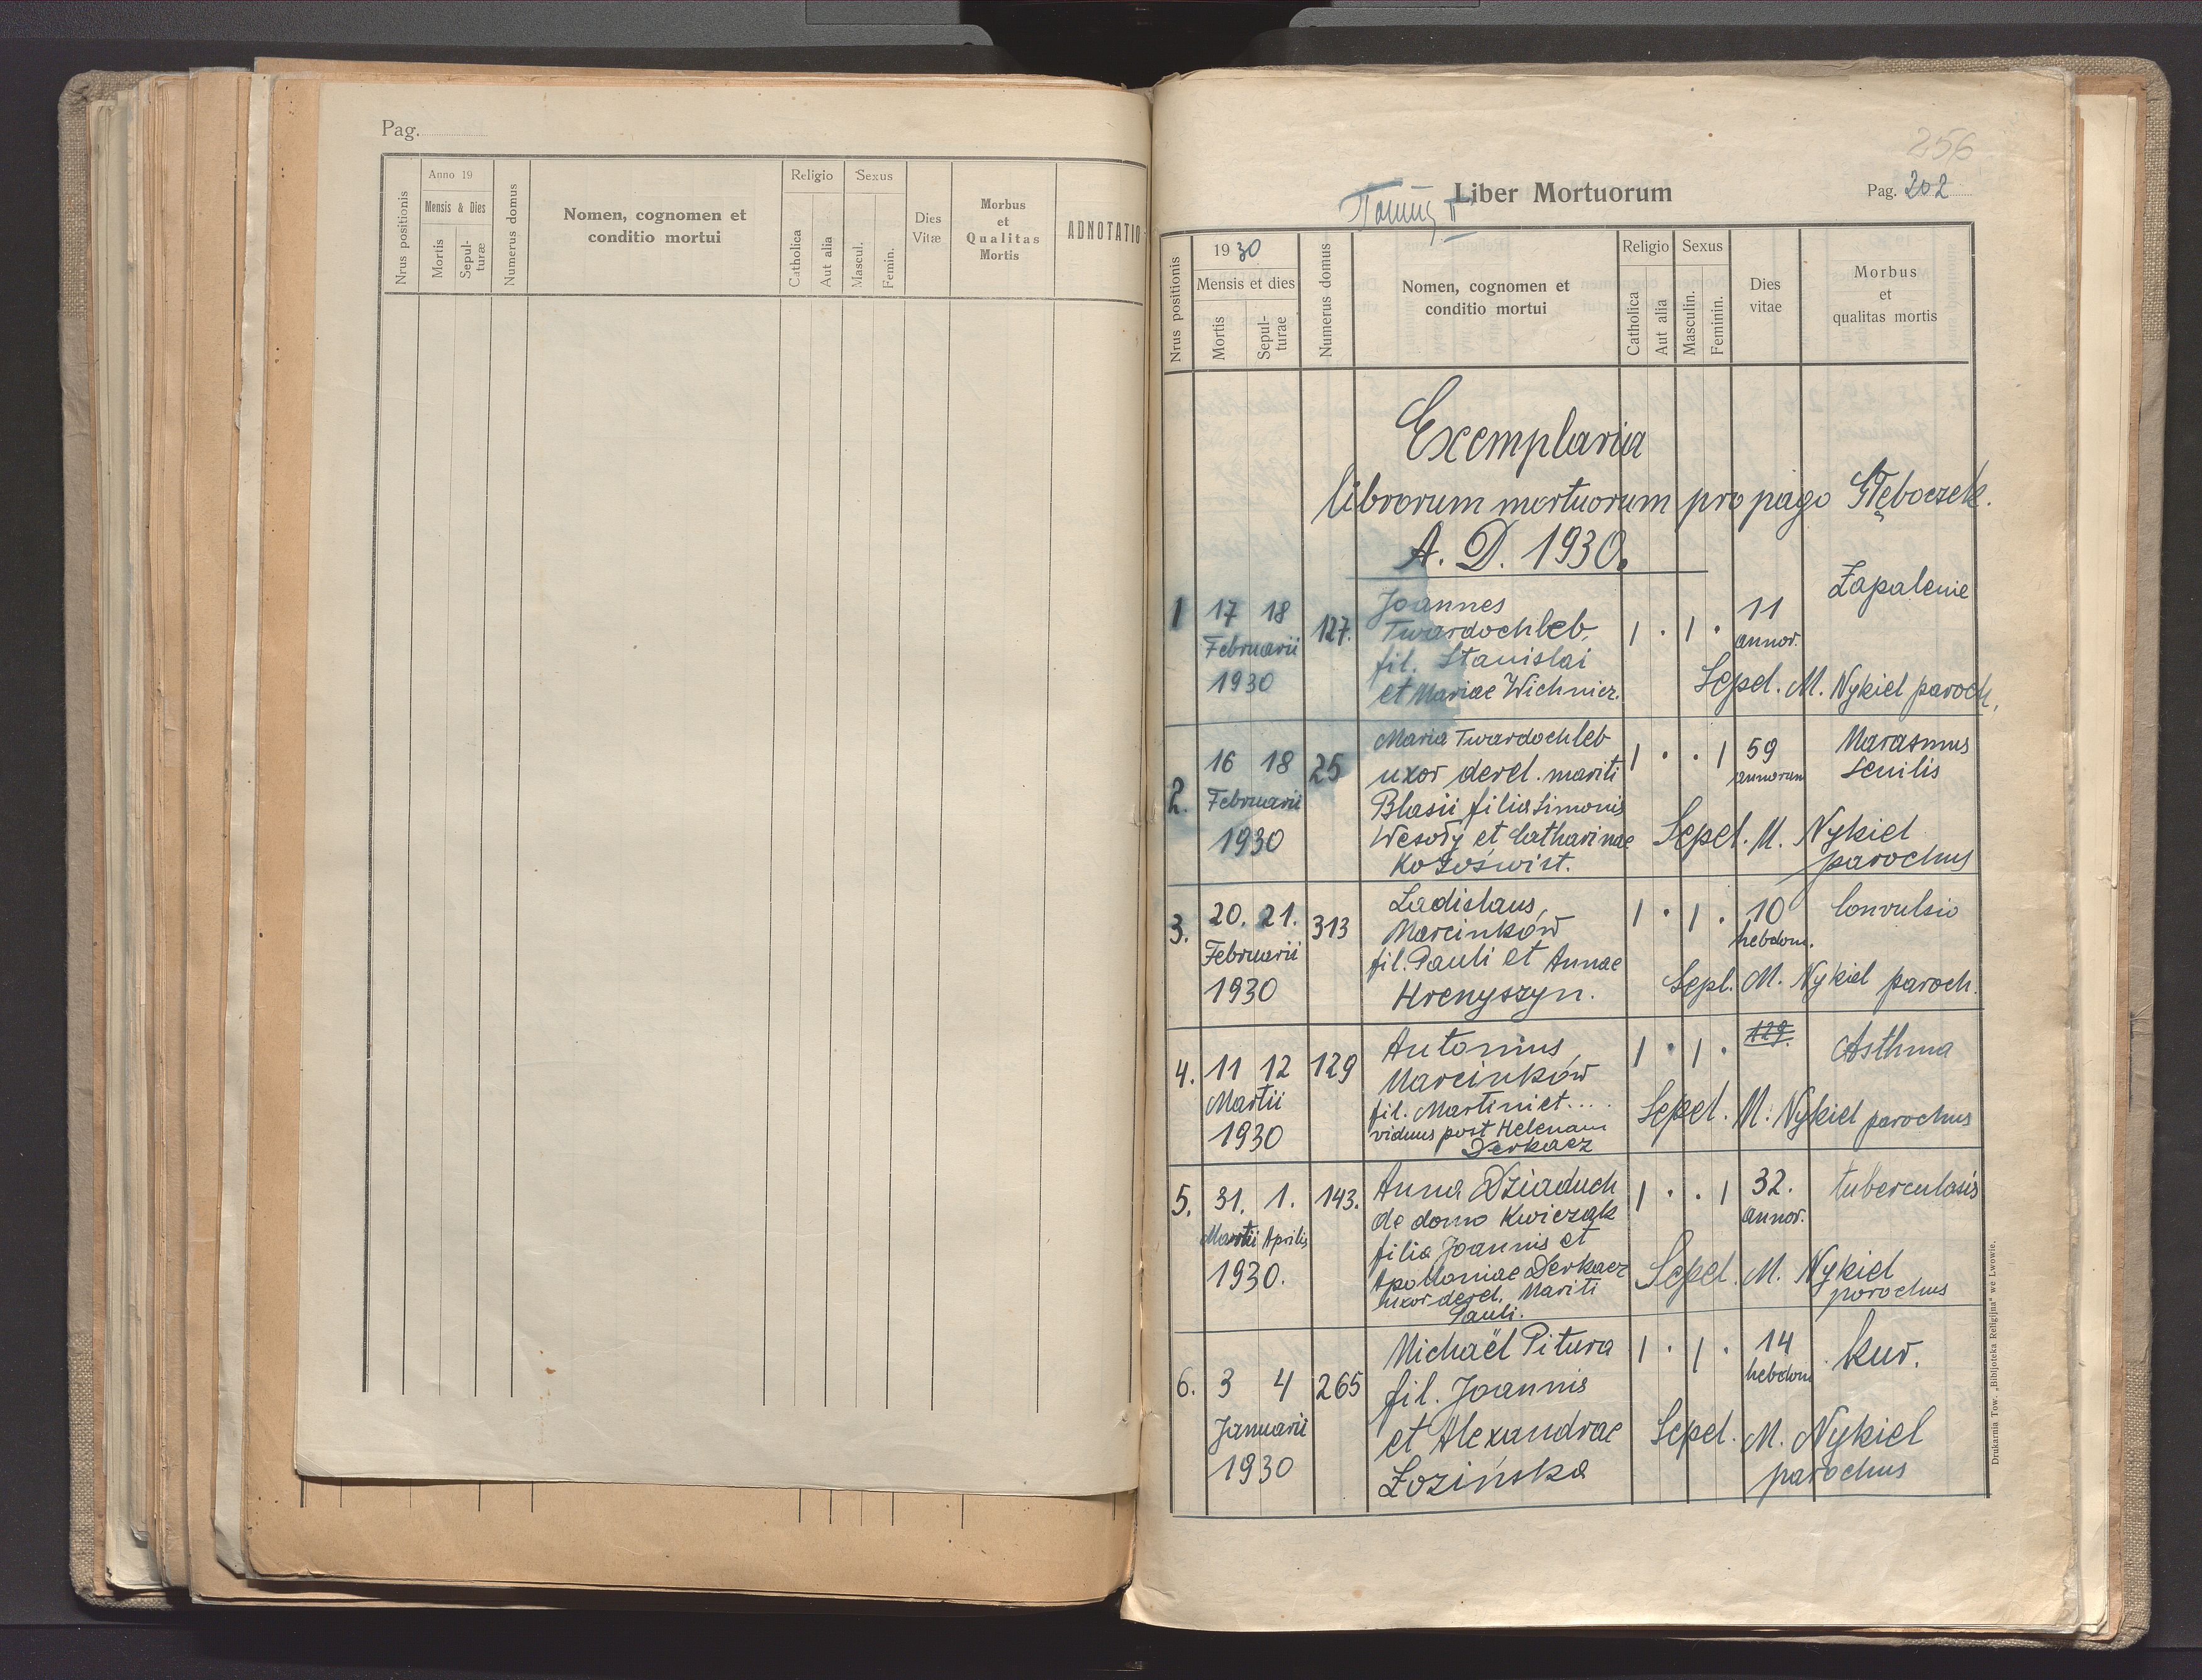 Pag.
Nrus positionis
Anno 19
Mensis & Dies
Mortis
Sepul-
turæ
Numerus domus
Nomen, cognomen et
conditio mortui
Religio
Catholica
Aut alia
Sexus
Mascul.
Femin.
Dies
Vitæ
Morbus
et
Qualitas
Mortis
ADNOTATIO
256
Liber Mortuorum
Pag. 202
Nrus positionis
1930
Mensis et dies
Mortis
Sepul-
turae
Numerus domus
Nomen, cognomen et
conditio mortui
Religio
Catholica
Aut alia
Sexus
Masculin.
Feminin.
Dies
vitae
Morbus
et
qualitas mortis
Exemplaria
librorum mortuorum pro pago Głęboczek.
A. D. 1930.
1 17 18
Februarii
1930
127.
Joannes
Twardochleb,
fil. Stanislai
et Mariae Wichnier.
1 . 1 .
11
annor.
Zapalenie
Sepel. M. Nykiel paroch.
2. 16 18
Februarii
1930
25
Maria Twardochleb
uxor derel. mariti
Blasii filia Simonis
Wesoły et Catharinae
Kołoświst.
1 . . 1
59
annorum
Marasmus
Senilis
Sepel. M. Nykiel
parochus
3. 20. 21.
Februarii
1930
313
Ladislaus,
Marcinków
fil. Pauli et Annae
Hrenyszyn.
1 . 1 .
10
hebdom.
Convulsio
Sepl. M. Nykiel paroch.
4. 11 12
Martii
1930
129
Antonius,
Marcinków
fil. Martini et....
viduus post Helenam
Derkacz
1 . 1 .
129.
Asthma
Sepel. M. Nykiel parochus
5. 31. 1.
Martii Aprilis
1930.
143.
Anna Dziaduch
de domo Kwiczak
filia Joannis et
Apolloniae Derkacz
uxor derel. Mariti
Pauli.
1 . . 1
32.
annor.
tuberculosis
Sepel. M. Nykiel
parochus
6. 3 4
Januarii
1930
265
Michaël Pitura
fil. Joannis
et Alexandrae
Łozińska
1 . 1 .
14
hebdom
kur.
Sepel. M. Nykiel
parochus
Drukarnia Tow. „Bibljoteka Religijna" we Lwowie.